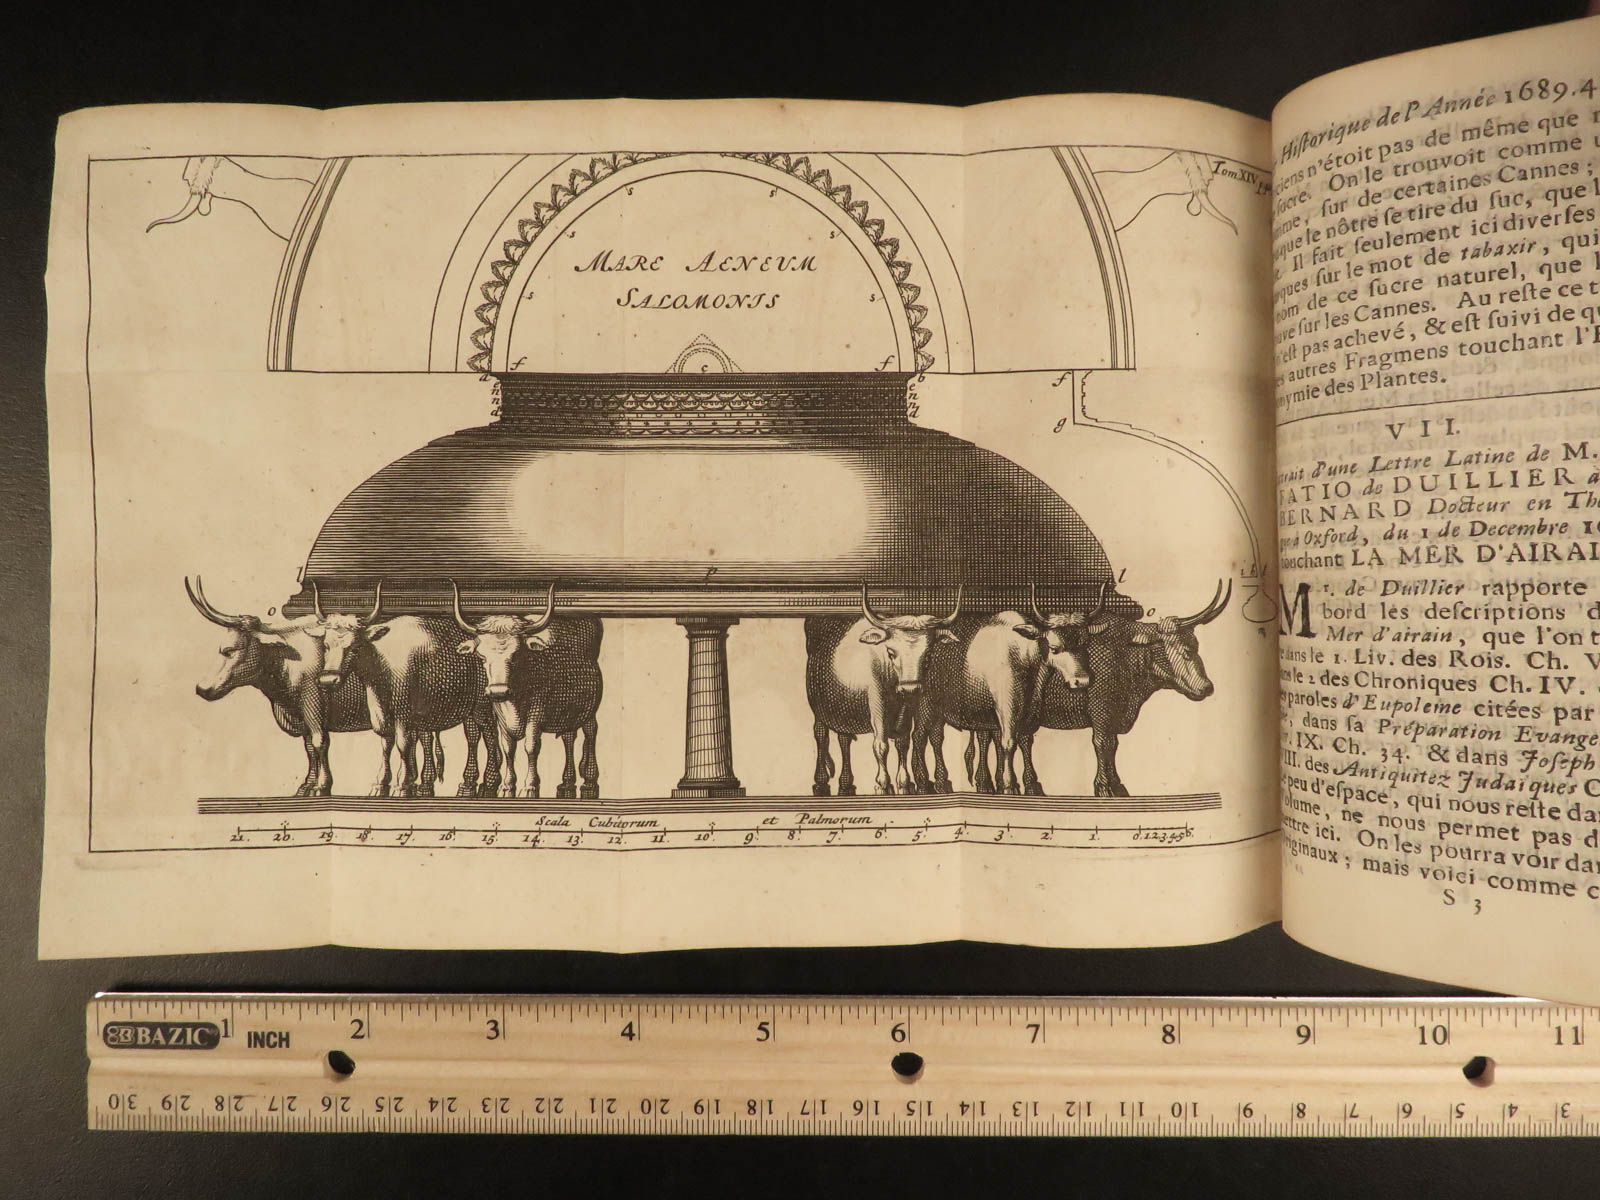 Tom. XIV.
MARE AENEVM
SALOMONIS
s s
s s
s s
f c f
a b
e n n d
e n n d
f
g
l p l
o o
Scala Cubitorum et Palmorum
21. 20. 19. 18. 17. 16. 15. 14. 13. 12. 11. 10. 9. 8. 7. 6. 5. 4. 3. 2. 1. 0.123456.
Historique de l'Année 1689. 4
n'étoit pas de même que
sucre. On le trouvoit comme
sur de certaines Cannes;
que le nôtre se tire du suc, que
Il fait seulement ici diverses
sur le mot de tabaxir, qui
nom de ce sucre naturel, que
sur les Cannes. Au reste ce
pas achevé, & est suivi de
autres Fragmens touchant l'
des Plantes.
VII.
d'une Lettre Latine de M.
FATIO de DUILLIER à
BERNARD Docteur en
à Oxford, du 1 de Decembre
touchant LA MER D'AIRAI
Mr. de Duillier rapporte
bord les descriptions
Mer d'airain, que l'on
dans le 1. Liv. des Rois. Ch. V
le 2 des Chroniques Ch. IV.
paroles d'Eupoleme citées par
dans sa Préparation Evange
IX. Ch. 34. & dans Joseph
des Antiquitez Judaïques
peu d'espace, qui nous reste
volume, ne nous permet pas
ici. On les pourra voir
originaux; mais voici comme
S 3
BAZIC INCH
1 2 3 4 5 6 7 8 9 10 11
30 29 28 27 26 25 24 23 22 21 20 19 18 17 16 15 14 13 12 11 10 9 8 7 6 5 4 3